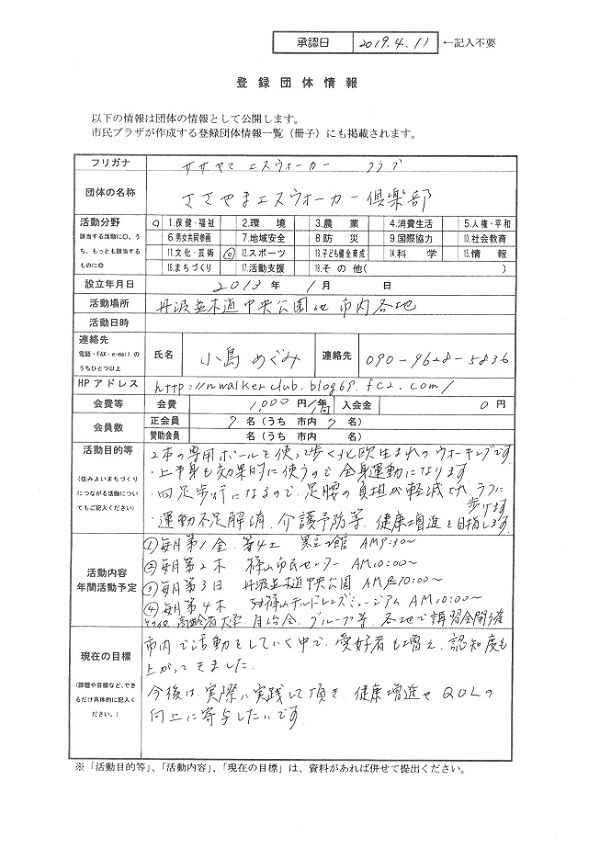 承認日 2019.4.11 ←記入不要
登録団体情報
以下の情報は団体の情報として公開します。
市民プラザが作成する登録団体情報一覧（冊子）にも掲載されます。
フリガナ ササヤマ エスウォーカー クラブ
団体の名称 ささやまエスウォーカー倶楽部
活動分野
該当する活動に○。うち、もっとも該当するものに◎
○ 1.保健・福祉 2.環境 3.農業 4.消費生活 5.人権・平和
6.男女共同参画 7.地域安全 8.防災 9.国際協力 10.社会教育
11.文化・芸術 ◎ 12.スポーツ 13.子ども健全育成 14.科学 15.情報
16.まちづくり 17.活動支援 18.その他( )
設立年月日 2013年 1月 日
活動場所 丹波並木道中央公園 他 市内各地
活動日時
連絡先
電話・FAX・e-mailのうちひとつ以上
氏名 小島 めぐみ 連絡先 090-9628-5836
HPアドレス http://nwalkerclub.blog69.fc2.com/
会費等 会費 1,000円/年 /回 入会金 0円
会員数 正会員 7名(うち 市内 7名)
賛助会員 名(うち 市内 名)
活動目的等
(住みよいまちづくりにつながる活動についてもご記入ください)
2本の専用ポールを使って歩く北欧生まれのウォーキングです
・上半身も効果的に使うので全身運動になります
・四足歩行になるので、足腰の負担が軽減され、ラクに
歩けます
・運動不足解消、介護予防等、健康増進を目指します
活動内容
年間活動予定
①毎月第1金、第4土 AM9:30〜
②毎月第2木 篠山市民センター AM10:00〜
③毎月第3日 丹波並木道中央公園 AM10:00〜
④毎月第4木 篠山チルドレンズミュージアム AM10:00〜
高齢者大学、自治会、グループ等、各地で講習会開催
現在の目標
(課題や目標など、できるだけ具体的に記入ください。)
市内で活動をしていく中で、愛好者も増え、認知度も
上がってきました。
今後は、実際に実践して頂き、健康増進やQOLの
向上に寄与したいです
※「活動目的等」、「活動内容」、「現在の目標」は、資料があれば併せて提出ください。